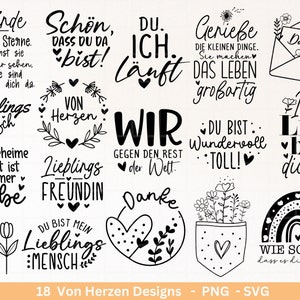 Sterne.
sehen,
sind
dich da.
Schön,
DASS DU DA
bist!
DU.
ICH.
läuft
Genieße
DIE KLEINEN DINGE.
Sie machen
DAS LEBEN
großartig
VON
Herzen
WIR
GEGEN DEN REST
der Welt.
DU BIST
Wundervoll
TOLL!
Lieblings
FREUNDIN
DU BIST MEIN
Lieblings
MENSCH
Danke
WIE SC
dass es di
18 Von Herzen Designs - PNG - SVG